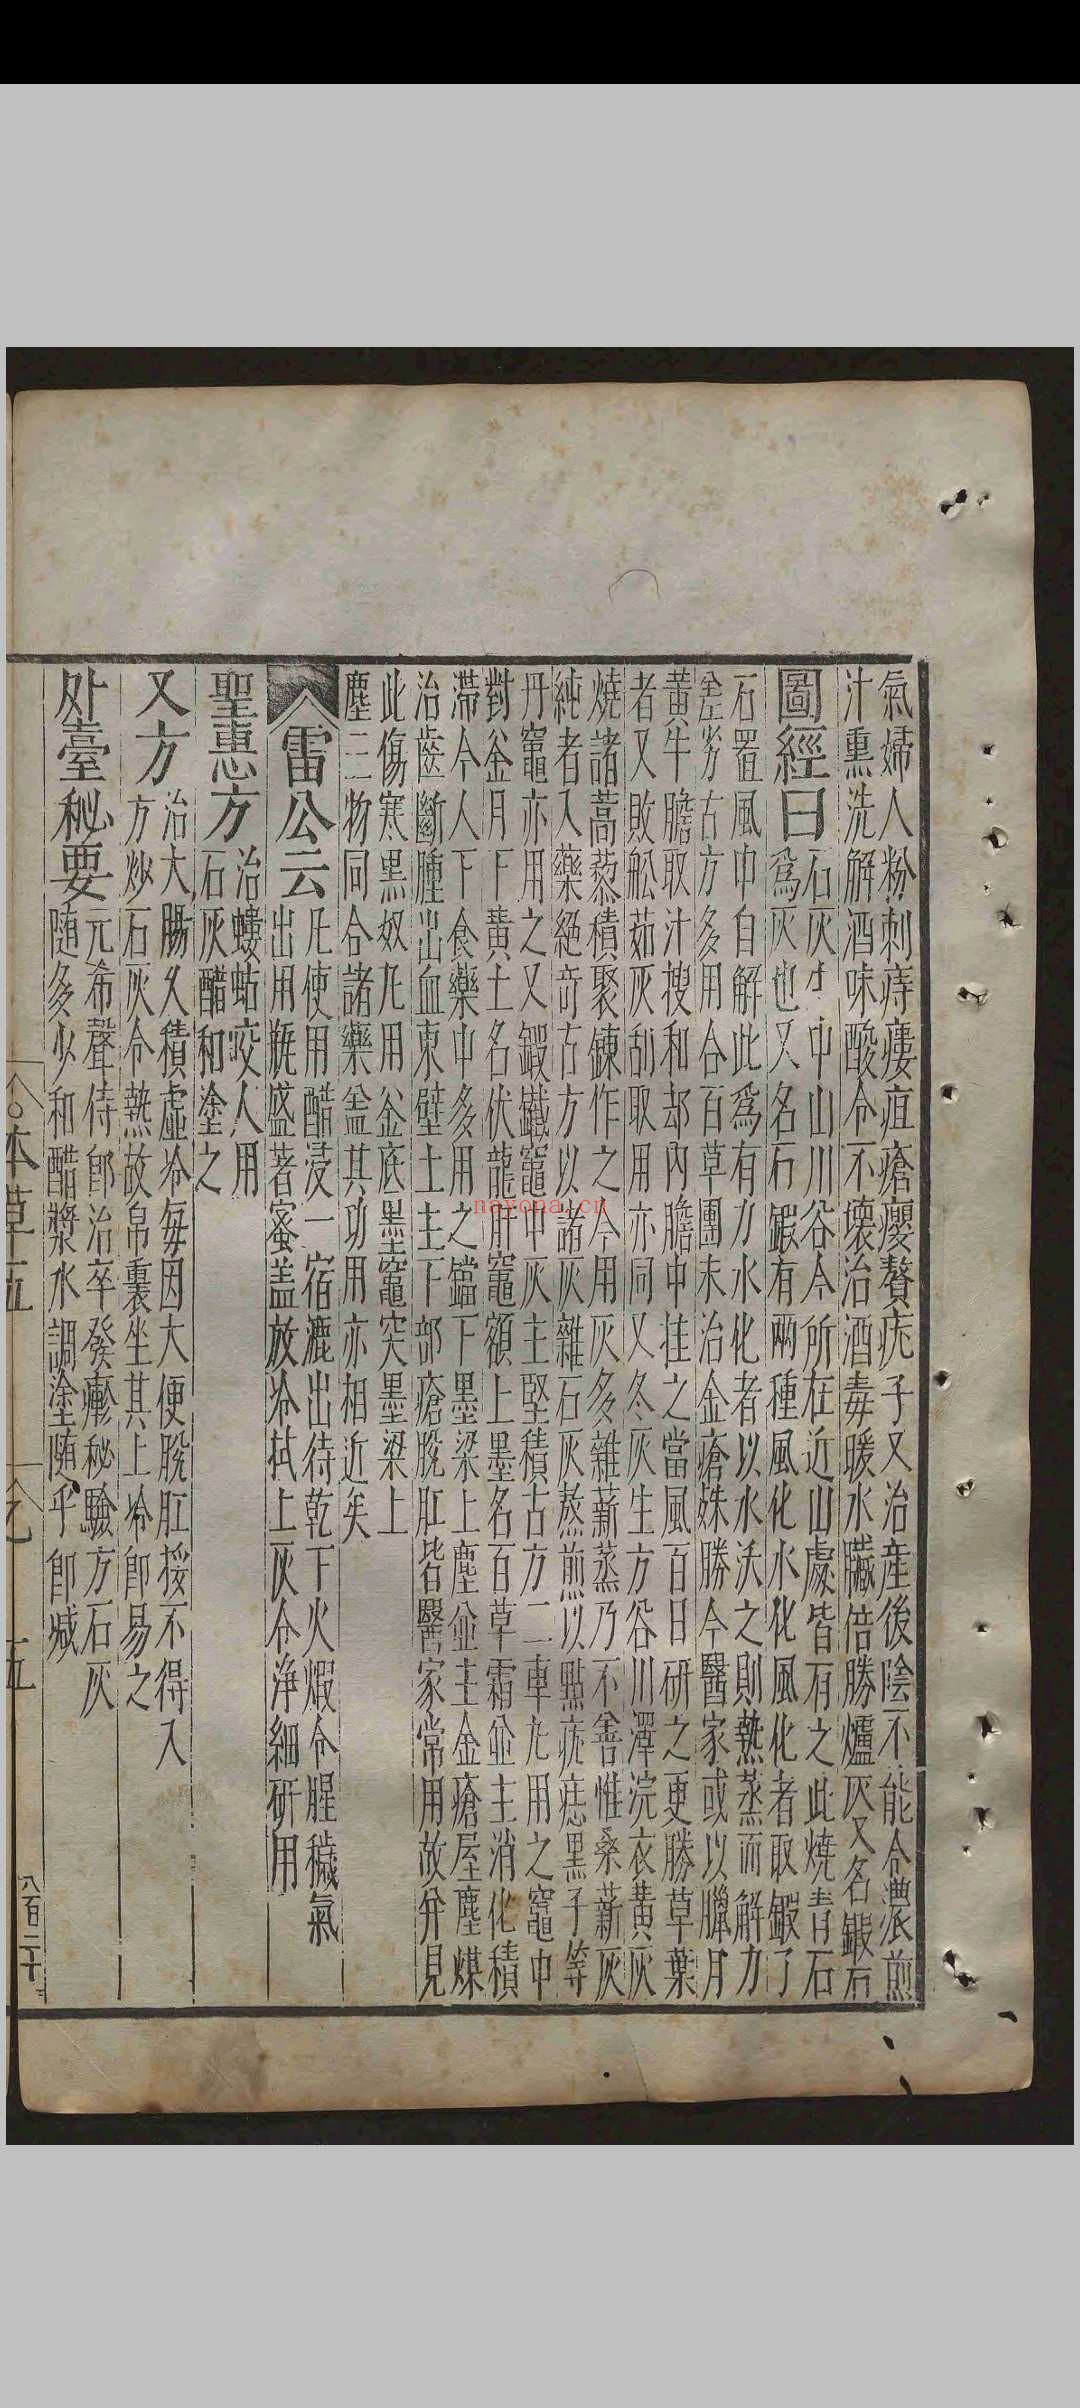 氣婦人粉刺痔瘻疽瘡癭贅疣子又治產後陰不能合濃煎
汁熏洗解酒味酸令不壞治酒毒暖水臟倍勝爐灰又名鍛石
圖經曰
石灰生中山川谷今所在近山處皆有之此燒青石
爲灰也又名石鍛有兩種風化水化風化者取鍛了
石置風中自解此爲有力水化者以水沃之則熱蒸而解力
差劣古方多用合百草團末治金瘡殊勝今醫家或以臘月
黃牛膽取汁搜和却內膽中挂之當風百日研之更勝草葉
者又敗舩茹灰刮取用亦同又冬灰生方谷川澤浣衣黃灰
燒諸蒿藜積聚鍊作之今用灰多雜薪蒸乃不善惟桑薪灰
純者入藥絕奇古方以諸灰雜石灰熬煎以點疣痣黑子等
丹竈亦用之又鍛鐵竈中灰主堅積古方二車丸用之竈中
對釜月下黃土名伏龍肝竈額上墨名百草霜並主消化積
滯今人下食藥中多用之鐺下墨梁上塵並主金瘡屋塵煤
治齒斷腫出血東壁土主下部瘡脫肛皆醫家常用故幷見
此傷寒黑奴丸用釜底墨竈突墨梁上
塵三物同合諸藥盖其功用亦相近矣
雷公云
凡使用醋浸一宿漉出待乾下火煆令腥穢氣
出用瓶盛著蜜盖放冷拭上灰令淨細研用
聖惠方
治螻蛄咬人用
石灰醋和塗之
又方
治大腸久積虛冷每因大便脫肛挼不得入
方炒石灰令熱故帛裹坐其上冷即易之
外臺秘要
元希聲侍郎治卒發癬秘驗方石灰
随多少和醋漿水調塗随手即減
本草五
五
八百二十
nayona.cn